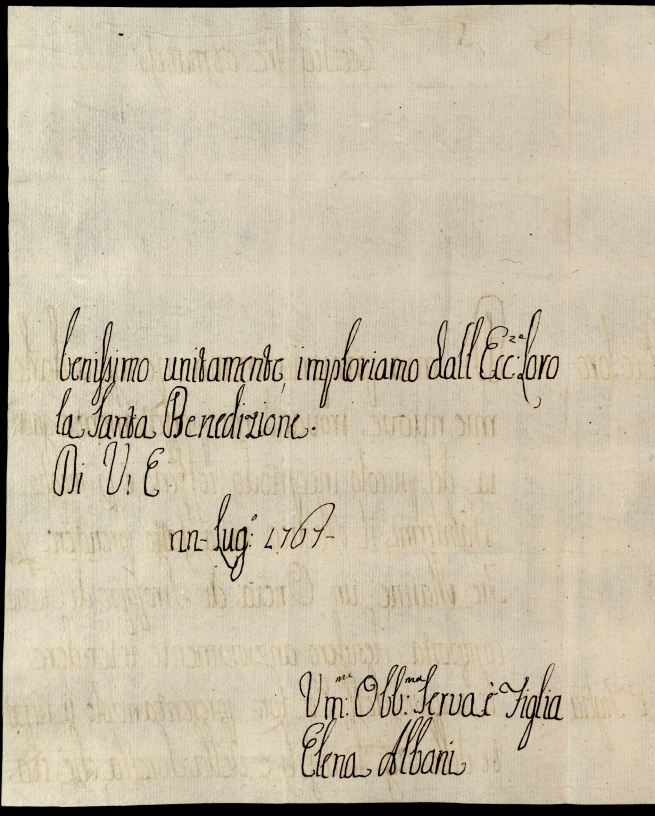 benissimo unitamente, imploriamo dall Ecc:za Loro
la Santa Benedizione.
Di V. E.
Lug:o 1767
Um:ma Obb:ma Serva è Figlia
Elena Albani